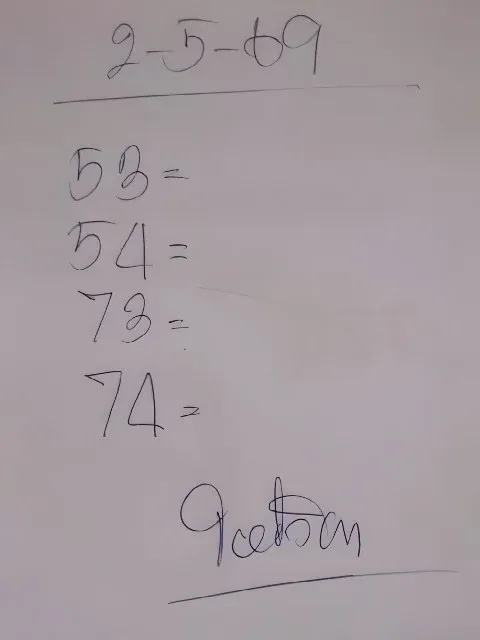 2-5-69
53=
54=
73=
74=